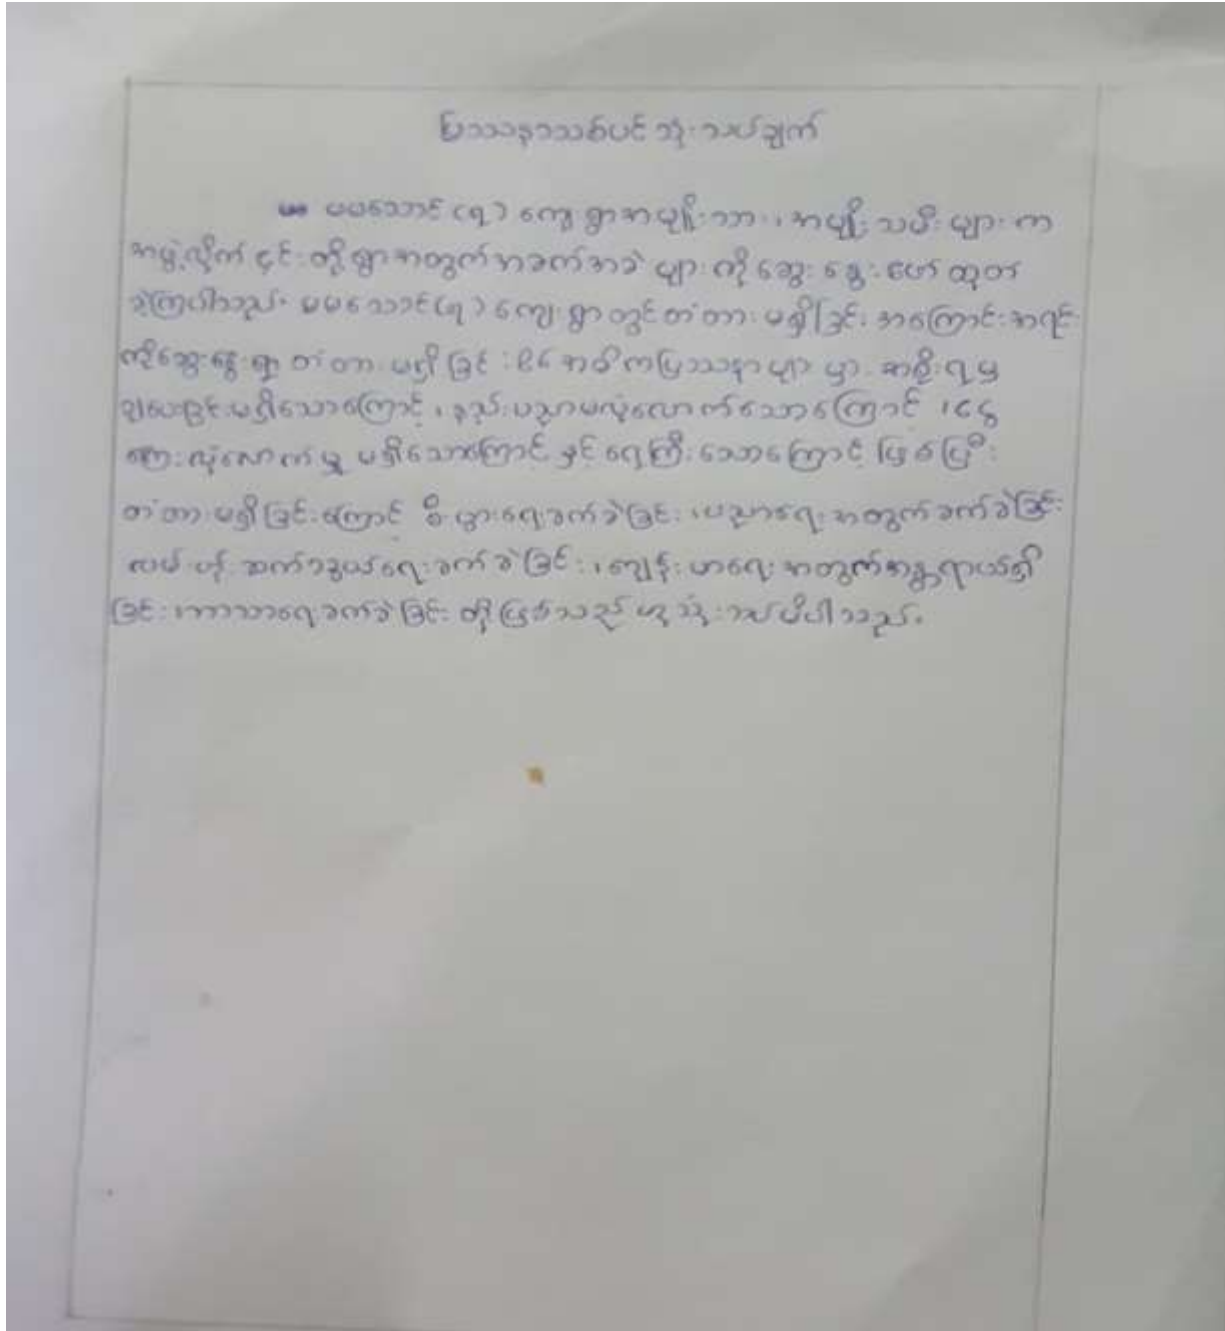 ပြဿနာသစ်ပင် သုံးသပ်ချက်
မမသောင် (ရ) ကျေးရွာအမျိုးသား၊ အမျိုးသမီးများက
အဖွဲ့လိုက် ၄င်းတို့ရွာအတွက်အခက်အခဲများကို ဆွေးနွေးဖော်ထုတ်
ခဲ့ကြပါသည်။ မမသောင်(ရ) ကျေးရွာတွင်တံတားမရှိခြင်း အကြောင်းအရင်း
ကိုဆွေးနွေးရာ တံတားမရှိခြင်း၏ အဓိကပြဿနာများမှာ အစိုးရမှ
ချပေးခြင်းမရှိသောကြောင့်၊ နည်းပညာမလုံလောက်သောကြောင့်၊ ငွေ
ကြေးလုံလောက်မှု မရှိသောကြောင့် နှင့် ရေကြီးသောကြောင့် ဖြစ်ပြီး
တံတားမရှိခြင်းကြောင့် စီးပွားရေးခက်ခဲခြင်း၊ ပညာရေးအတွက်ခက်ခဲခြင်း
လမ်းပန်းဆက်သွယ်ရေးခက်ခဲခြင်း၊ ကျန်းမာရေးအတွက်အန္တရာယ်ရှိ
ခြင်း၊ ဘာသာရေးခက်ခဲခြင်း တို့ဖြစ်သည်ဟု သုံးသပ်မိပါသည်။